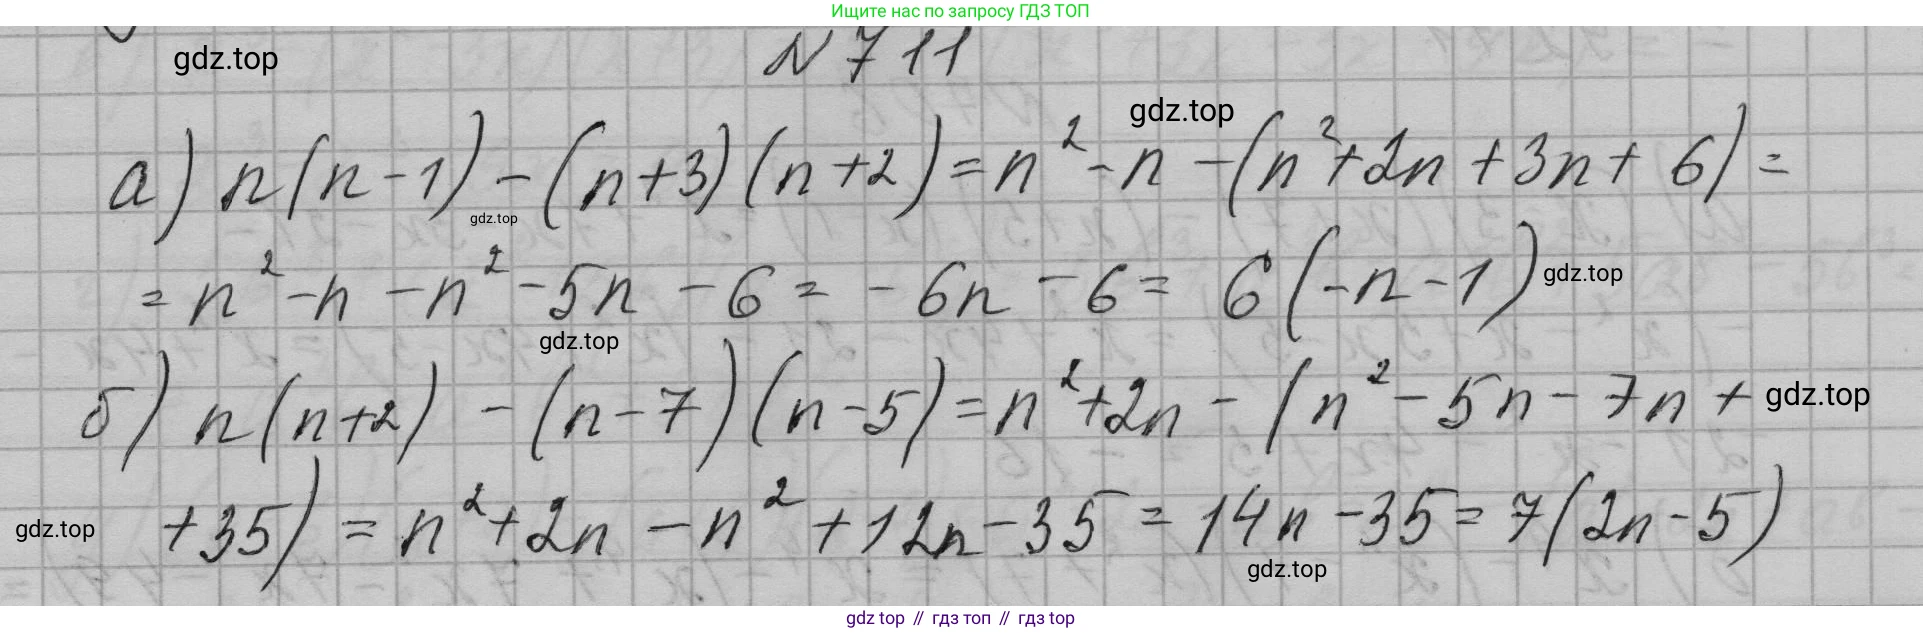 Ищите нас по запросу ГДЗ ТОП
gdz.top
N 711
gdz.top
а) n(n-1) - (n+3)(n+2) = n² - n - (n² + 2n + 3n + 6) =
gdz.top
= n² - n - n² - 5n - 6 = - 6n - 6 = 6(-n-1)
gdz.top
gdz.top
б) n(n+2) - (n-7)(n-5) = n² + 2n - (n² - 5n - 7n +
gdz.top
gdz.top
+35) = n² + 2n - n² + 12n - 35 = 14n - 35 = 7(2n-5)
gdz.top
gdz top // гдз топ // гdz top